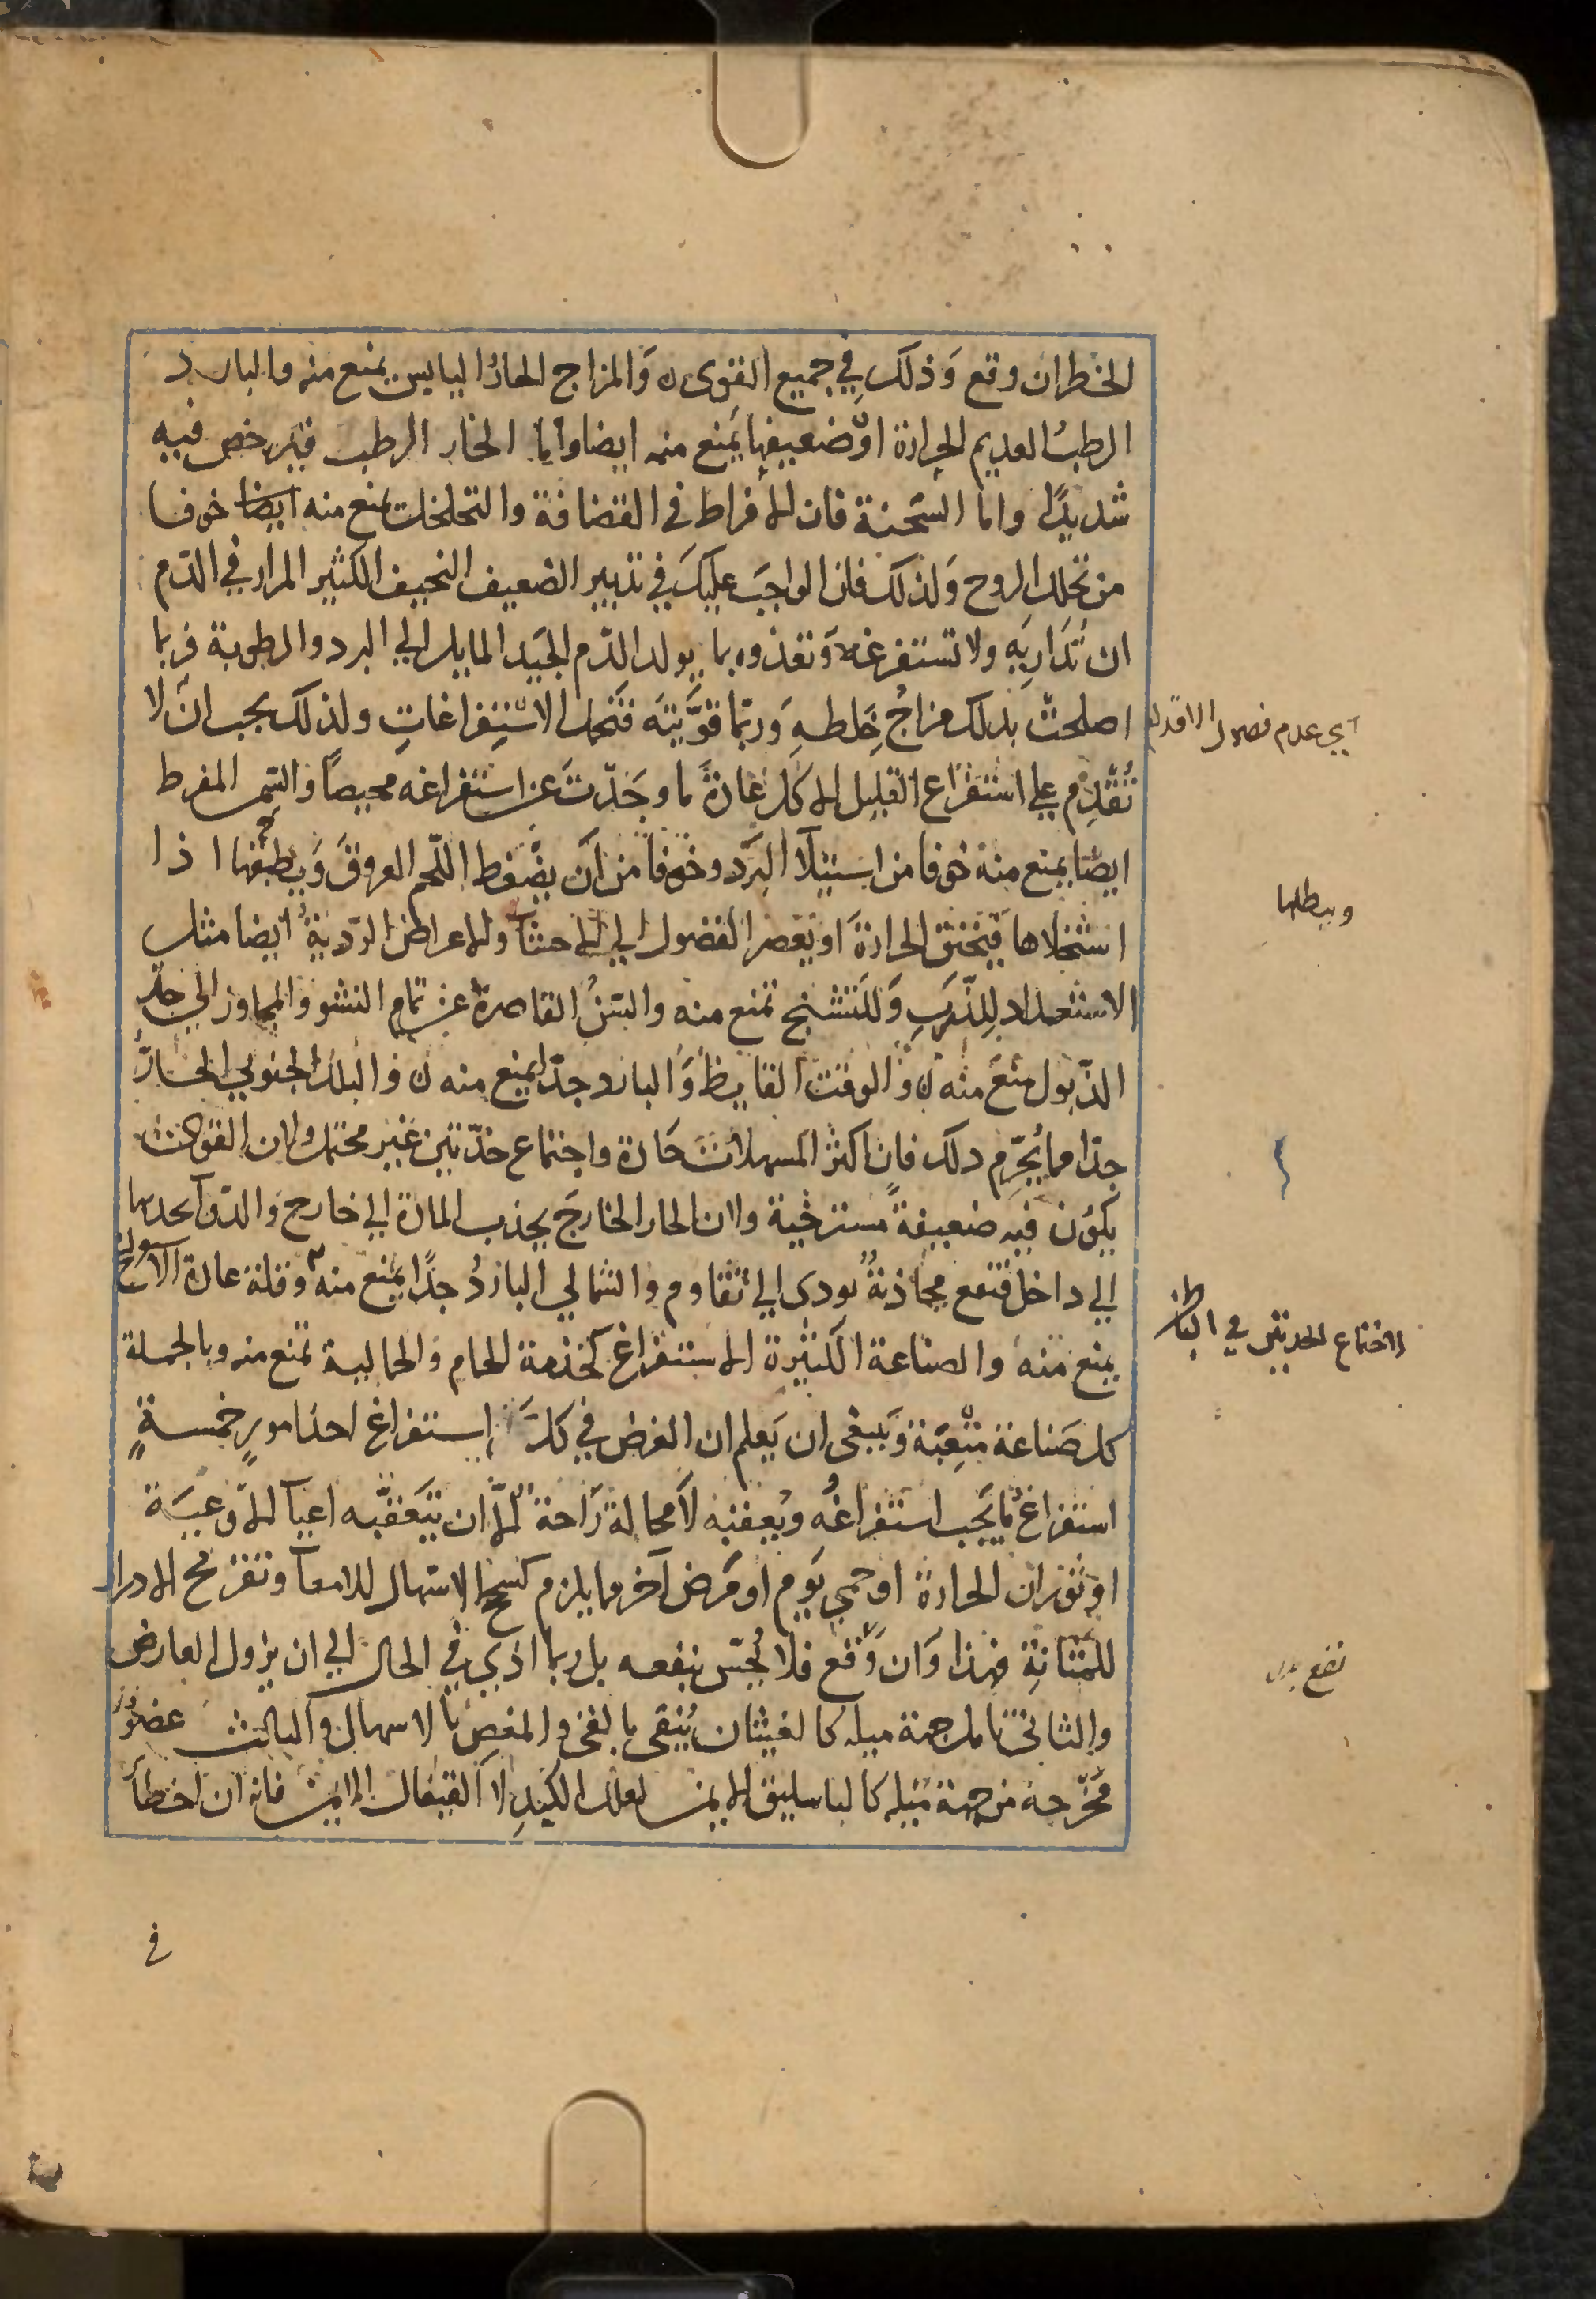 الخطر ان وقع وَذلكَ فِي جميع القوى ه وَالمزاج الحارُ اليابس يمنع منه والبارد
الرطبُ العديم الحرارة اوْ ضعيفها يمنع منه ايضا واما الحار الرطب فيرخص فيه
شديدًا واما السّحنة فان الافراط في القضافة والتخلخل يمنع منه ايضا خوفا
من تحلل الروح وَلذلكَ فان الواجبَ عليكَ في تدبير الضعيف النحيف الكثير المرار في الدّم
ان تُدَاريَه ولا تستفرغهُ وَتغذوه بما يولد الدّم الجيّد المايل الي البرد والرطوبة فربما
اصلحتَ بذلك مزاجُ خِلطهِ وَربّما قوَّيتَه فتحمل الاستِفراغاتِ ولذلكَ يجب انْ لا
تُقْدِم علي استفراغ القليل الاكل عَادةً ما وجَدّتَ عن استفراغه محيصًا والسّمن المفرط
ايضًا يمنع منه خوفا من استيلآ البَرد وخوفا من اَن يضْغط اللّحم العروقَ وَيطبّقها اذا
استخلاها فيخنق الحرارةَ او يَعصر الفضول الي الاحشآ والاعراض الرّديّةُ ايضا مثل
الاستعداد لِلذّرَبِ وَللتشنج تمنع منه والسّنُ القاصرة عن تمام النشو والمجاوز الي حدّ
الذّبول مَنَعَ منه ه وَالوقت القايظ وَالبارد جدّا يمنع منه ه والبلد الجنوبي الحَارُّ
جدّا مما يُحَرِّم ذلك فان اكثر المسهلات حَادة واجتماع حَدّتين غير محتمل ولان القوى
يكون فيه ضعيفةً مسترخية ولان الحار الخارجَ يجذب المادة الي خارج والدّوآ يجذبها
الي داخل فتقع مجاذبةُ تودى الي تقاوم والشمالي الباردُ جدًا يمنع منه وقلة عادة الاستفراغ
يمنع منه والصناعة الكثيرة الاستفراغ كخدمة الحمام والحمالية تمنع منه وبالجملة
كل صَناعة متْعِبَة وَينبغى ان يَعلم ان الغرض في كل إستفراغ احد امورٍ خمسةٍ
استفراغ ما يَجب استفراغُه ويُعقبه لاَ محالة رَاحة الاّ ان يتَعَقّبه اعيآ الاوعيَة
او ثوَران الحرارة او حمي يَوم او مَرض آخر مما يلزم كسَحج الاسْهال للامعآ وتقرح الادرار
للمَثانةِ فهذا وَان وقع فلا يُحَسّ بنفعه بل ربما اذي في الحال الي ان يزول العارض
والثانى تامل جهة ميله كالغيثان يُنقى بالقئ والمغص بالاسهال والثالث عضو
مَخرَجهُ من جهة مَيله كالباسليق الايمن لعلل الكبِد لا القيفال الايمن فانه ان اخطأ
في
اي عدم فصول الاقدام
ويبطلها
لاجتماع الحدتين في
نفع